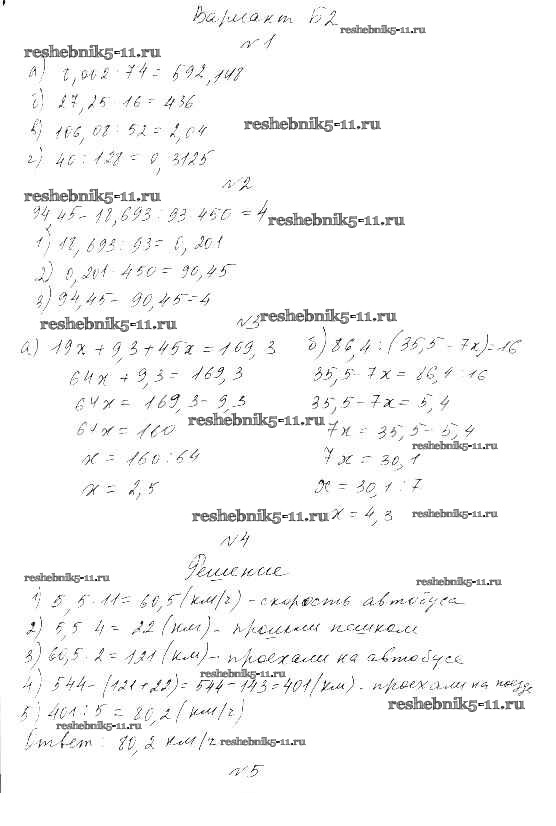 Вариант Б2
reshebnik5-11.ru
№1
reshebnik5-11.ru
а) 8,002 · 74 = 592,148
б) 27,25 · 16 = 436
reshebnik5-11.ru
в) 106,08 : 52 = 2,04
г) 40 : 128 = 0,3125
№2
reshebnik5-11.ru
94,45 - 18,693 : 93 · 450 = 4
reshebnik5-11.ru
1) 18,693 : 93 = 0,201
2) 0,201 · 450 = 90,45
3) 94,45 - 90,45 = 4
reshebnik5-11.ru
№3
reshebnik5-11.ru
а) 19x + 9,3 + 45x = 169,3
64x + 9,3 = 169,3
64x = 169,3 - 9,3
reshebnik5-11.ru
64x = 160
x = 160 : 64
x = 2,5
б) 86,4 : (35,5 - 7x) = 16
35,5 - 7x = 86,4 : 16
35,5 - 7x = 5,4
7x = 35,5 - 5,4
reshebnik5-11.ru
7x = 30,1
x = 30,1 : 7
reshebnik5-11.ru
x = 4,3
reshebnik5-11.ru
№4
Решение
reshebnik5-11.ru
reshebnik5-11.ru
1) 5,5 · 11 = 60,5 (км/ч) - скорость автобуса
2) 5,5 · 4 = 22 (км) - прошли пешком
3) 60,5 · 2 = 121 (км) - проехали на автобусе
reshebnik5-11.ru
4) 544 - (121 + 22) = 544 - 143 = 401 (км) - проехали на поезде
reshebnik5-11.ru
5) 401 : 5 = 80,2 (км/ч)
reshebnik5-11.ru
Ответ: 80,2 км/ч
reshebnik5-11.ru
№5